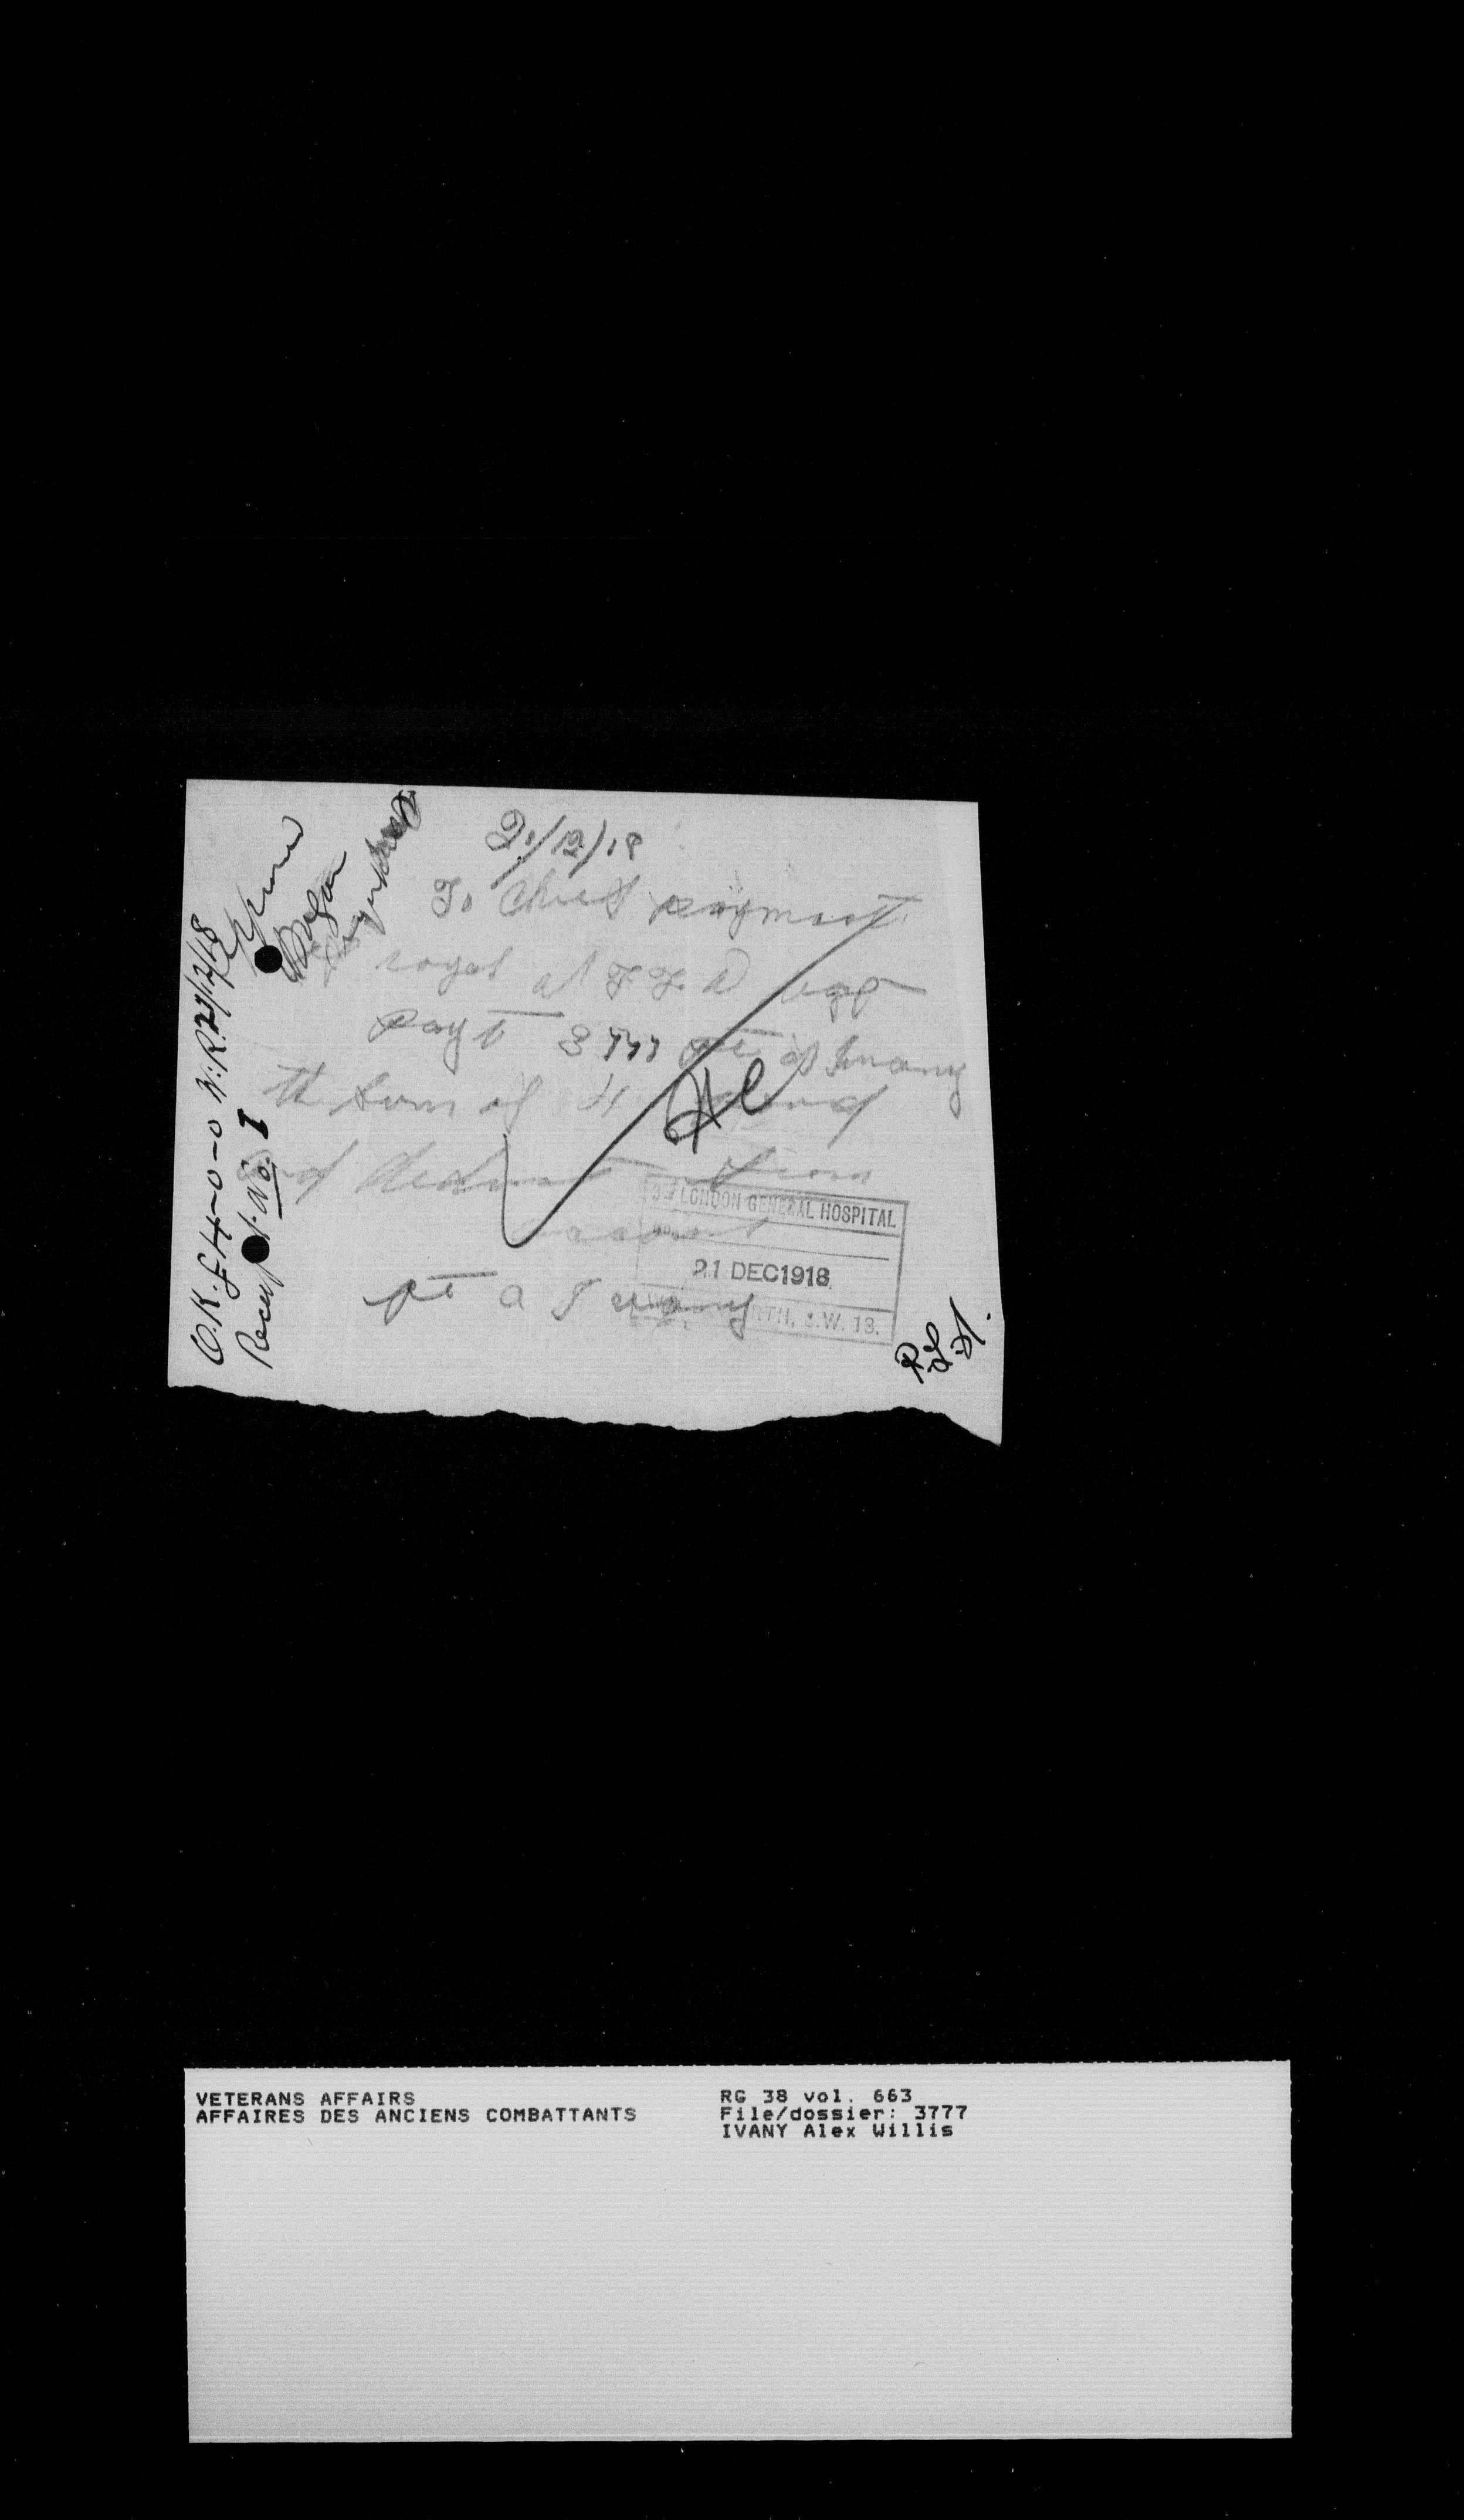 21/12/18
To Chief paymast
royal N F L D regt
pay to 3777 pte A Ivany
the sum of 4 pound
and deduct from
account
pte A I vany
3rd LONDON GENERAL HOSPITAL
21 DEC 1918
RTH, S.W. 18.
O.K. £4-0-0 N.R. 21/12/18
Receipt No. I
VETERANS AFFAIRS
AFFAIRES DES ANCIENS COMBATTANTS
RG 38 vol. 663
File/dossier: 3777
IVANY Alex Willis